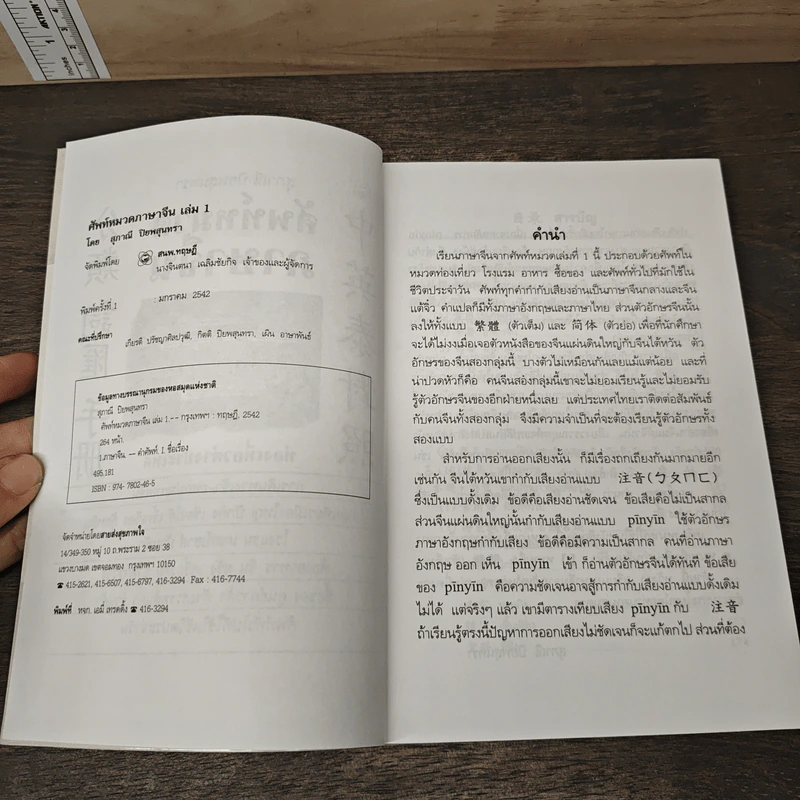 ศัพท์หมวดภาษาจีน เล่ม 1
โดย สุภาณี ปิยพสุนทรา
จัดพิมพ์โดย สนพ.ทฤษฎี
นางจินตนา เฉลิมชัยกิจ เจ้าของและผู้จัดการ
พิมพ์ครั้งที่ 1 : มกราคม 2542
คณะที่ปรึกษา เกียรติ ปรัชญาศิลปวุฒิ, กิตติ ปิยพสุนทรา, เมิน อาษาพันธ์
ข้อมูลทางบรรณานุกรมของหอสมุดแห่งชาติ
สุภาณี ปิยพสุนทรา
ศัพท์หมวดภาษาจีน เล่ม 1.-- กรุงเทพฯ : ทฤษฎี, 2542
264 หน้า.
1.ภาษาจีน. -- คำศัพท์. I. ชื่อเรื่อง
495.181
ISBN : 974- 7802-46-5
จัดจำหน่ายโดยสายส่งสุขภาพใจ
14/349-350 หมู่ 10 ถ.พระราม 2 ซอย 38
แขวงบางมด เขตจอมทอง กรุงเทพฯ 10150
☎ 415-2621, 415-6507, 415-6797, 416-3294 Fax : 416-7744
พิมพ์ที่ หจก. เอมี่ เทรดดิ้ง ☎ 416-3294
คำนำ
เรียนภาษาจีนจากศัพท์หมวดเล่มที่ 1 นี้ ประกอบด้วยศัพท์ใน
หมวดท่องเที่ยว โรงแรม อาหาร ซื้อของ และศัพท์ทั่วไปที่มักใช้ใน
ชีวิตประจำวัน ศัพท์ทุกคำกำกับเสียงอ่านเป็นภาษาจีนกลางและจีน
แต้จิ๋ว คำแปลก็มีทั้งภาษาอังกฤษและภาษาไทย ส่วนตัวอักษรจีนนั้น
ลงให้ทั้งแบบ 繁體 (ตัวเต็ม) และ 简体 (ตัวย่อ) เพื่อที่นักศึกษา
จะได้ไม่งงเมื่อเจอตัวหนังสือของจีนแผ่นดินใหญ่กับจีนไต้หวัน ตัว
อักษรของจีนสองกลุ่มนี้ บางตัวไม่เหมือนกันเลยแม้แต่น้อย และที่
น่าปวดหัวก็คือ คนจีนสองกลุ่มนี้เขาจะไม่ยอมเรียนรู้และไม่ยอมรับ
รู้ตัวอักษรจีนของอีกฝ่ายหนึ่งเลย แต่ประเทศไทยเราติดต่อสัมพันธ์
กับคนจีนทั้งสองกลุ่ม จึงมีความจำเป็นที่จะต้องเรียนรู้ตัวอักษรทั้ง
สองแบบ
สำหรับการอ่านออกเสียงนั้น ก็มีเรื่องถกเถียงกันมากมายอีก
เช่นกัน จีนไต้หวันเขากำกับเสียงอ่านแบบ 注音(ㄅㄆㄇㄈ)
ซึ่งเป็นแบบดั้งเดิม ข้อดีคือเสียงอ่านชัดเจน ข้อเสียคือไม่เป็นสากล
ส่วนจีนแผ่นดินใหญ่นั้นกำกับเสียงอ่านแบบ pīnyīn ใช้ตัวอักษร
ภาษาอังกฤษกำกับเสียง ข้อดีคือมีความเป็นสากล คนที่อ่านภาษา
อังกฤษ ออก เห็น pīnyīn เข้า ก็อ่านตัวอักษรจีนได้ทันที ข้อเสีย
ของ pīnyīn คือความชัดเจนอาจสู้การกำกับเสียงอ่านแบบดั้งเดิม
ไม่ได้ แต่จริงๆ แล้ว เขามีตารางเทียบเสียง pīnyīn กับ 注音
ถ้าเรียนรู้ตรงนี้ปัญหาการออกเสียงไม่ชัดเจนก็จะแก้ตกไป ส่วนที่ต้อง